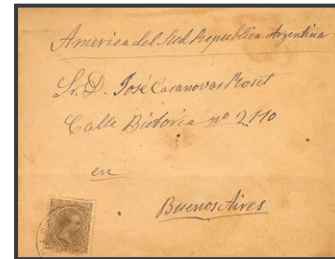 America del Sud Republica Argentina
Sr. D. José Casanovas Roset
Calle Bictoria nº 2110
en
Buenos Aires